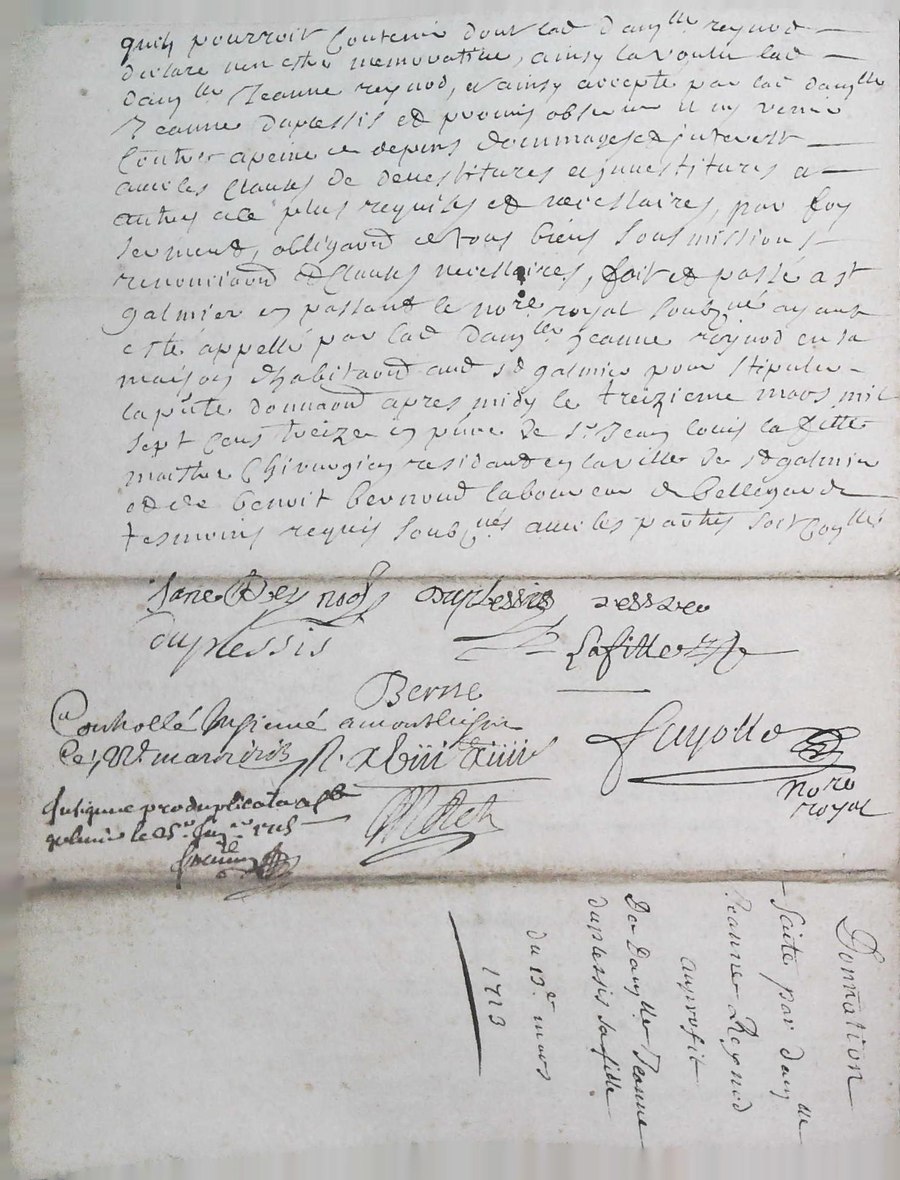 quil pourroit Contenir dont lad damlle reynod
declare nen estre memorative, ainsy la voulu lad
damlle Jeanne reynod, et ainsy accepté par lad damlle
Jeanne duplessis et promis observer ny venir
Contre a peine de depens dommages et interest
avec les Clauses de devestitures et investitures
autres plus requises et necessaires, par foy
serment, obligaon de tous biens Sousmissions
renonciaon et Clauses necessaires, fait et passé a st
galmier en passant le nore royal Soubzné ayant
esté appellé par lad damlle Jeanne reynod en sa
maison d'habitaon aud st galmier pour stipuler
la pnte donnaon apres midy le treizieme mars mil
sept Cens treize en pnce de sr Jean louis lafitte
maitre Chirurgien residant en la ville de st galmier
et de benoit bernoud laboureur de bellegarde
tesmoins requis Soubznés avec les parties
Jane Reynod duplessis
duplessis
Lafitte
Berne
Controllé Insinué a montbrison
Le mars 1713
Fayolle
nore
royal
Insigne pro duplicata a st
galmier le 25e 1715
Donnation
faite par damlle
Jeanne Reynod
au profit
De Damlle Jeanne
duplessis sa fille
du 13e mars
1713